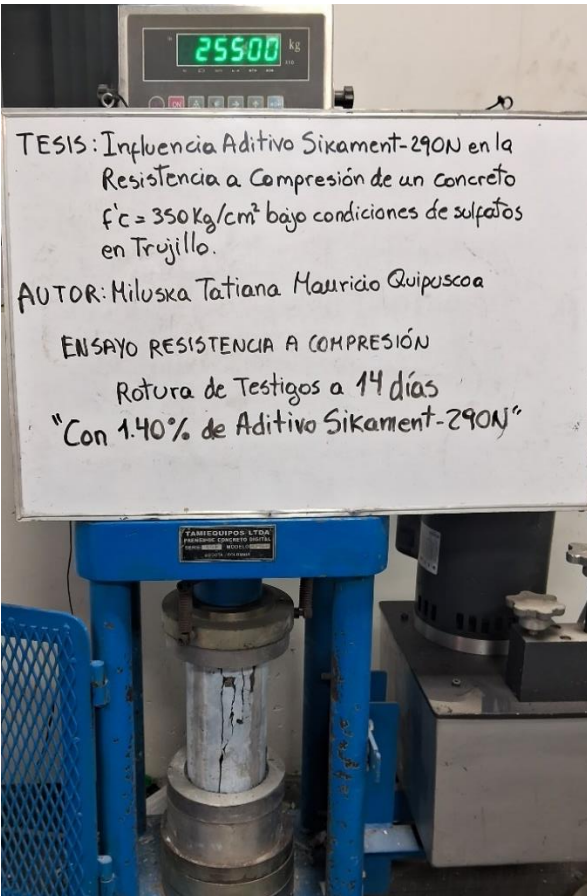 25500 kg
ON
TESIS: Influencia Aditivo Sikament-290N en la
Resistencia a Compresión de un concreto
f'c = 350 Kg/cm² bajo condiciones de sulfatos
en Trujillo.
AUTOR: Miluska Tatiana Mauricio Quipuscoa
ENSAYO RESISTENCIA A COMPRESIÓN
Rotura de Testigos a 14 días
"Con 1.40% de Aditivo Sikament-290N"
TAMIEQUIPOS LTDA
CONCRETO DIGITAL
SERIE MODELO